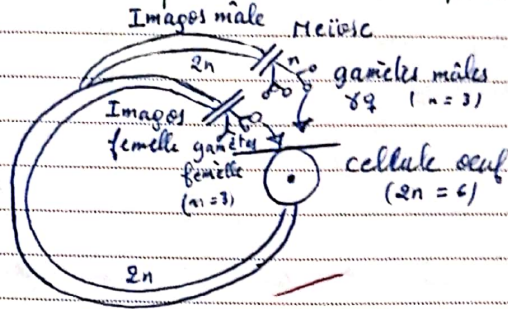 Imagos mâle
Meïose
2n
n
gamètes mâles
(n=3)
Imagos
femelle
gamètes
femelle
(n=3)
cellule oeuf
(2n = 6)
2n